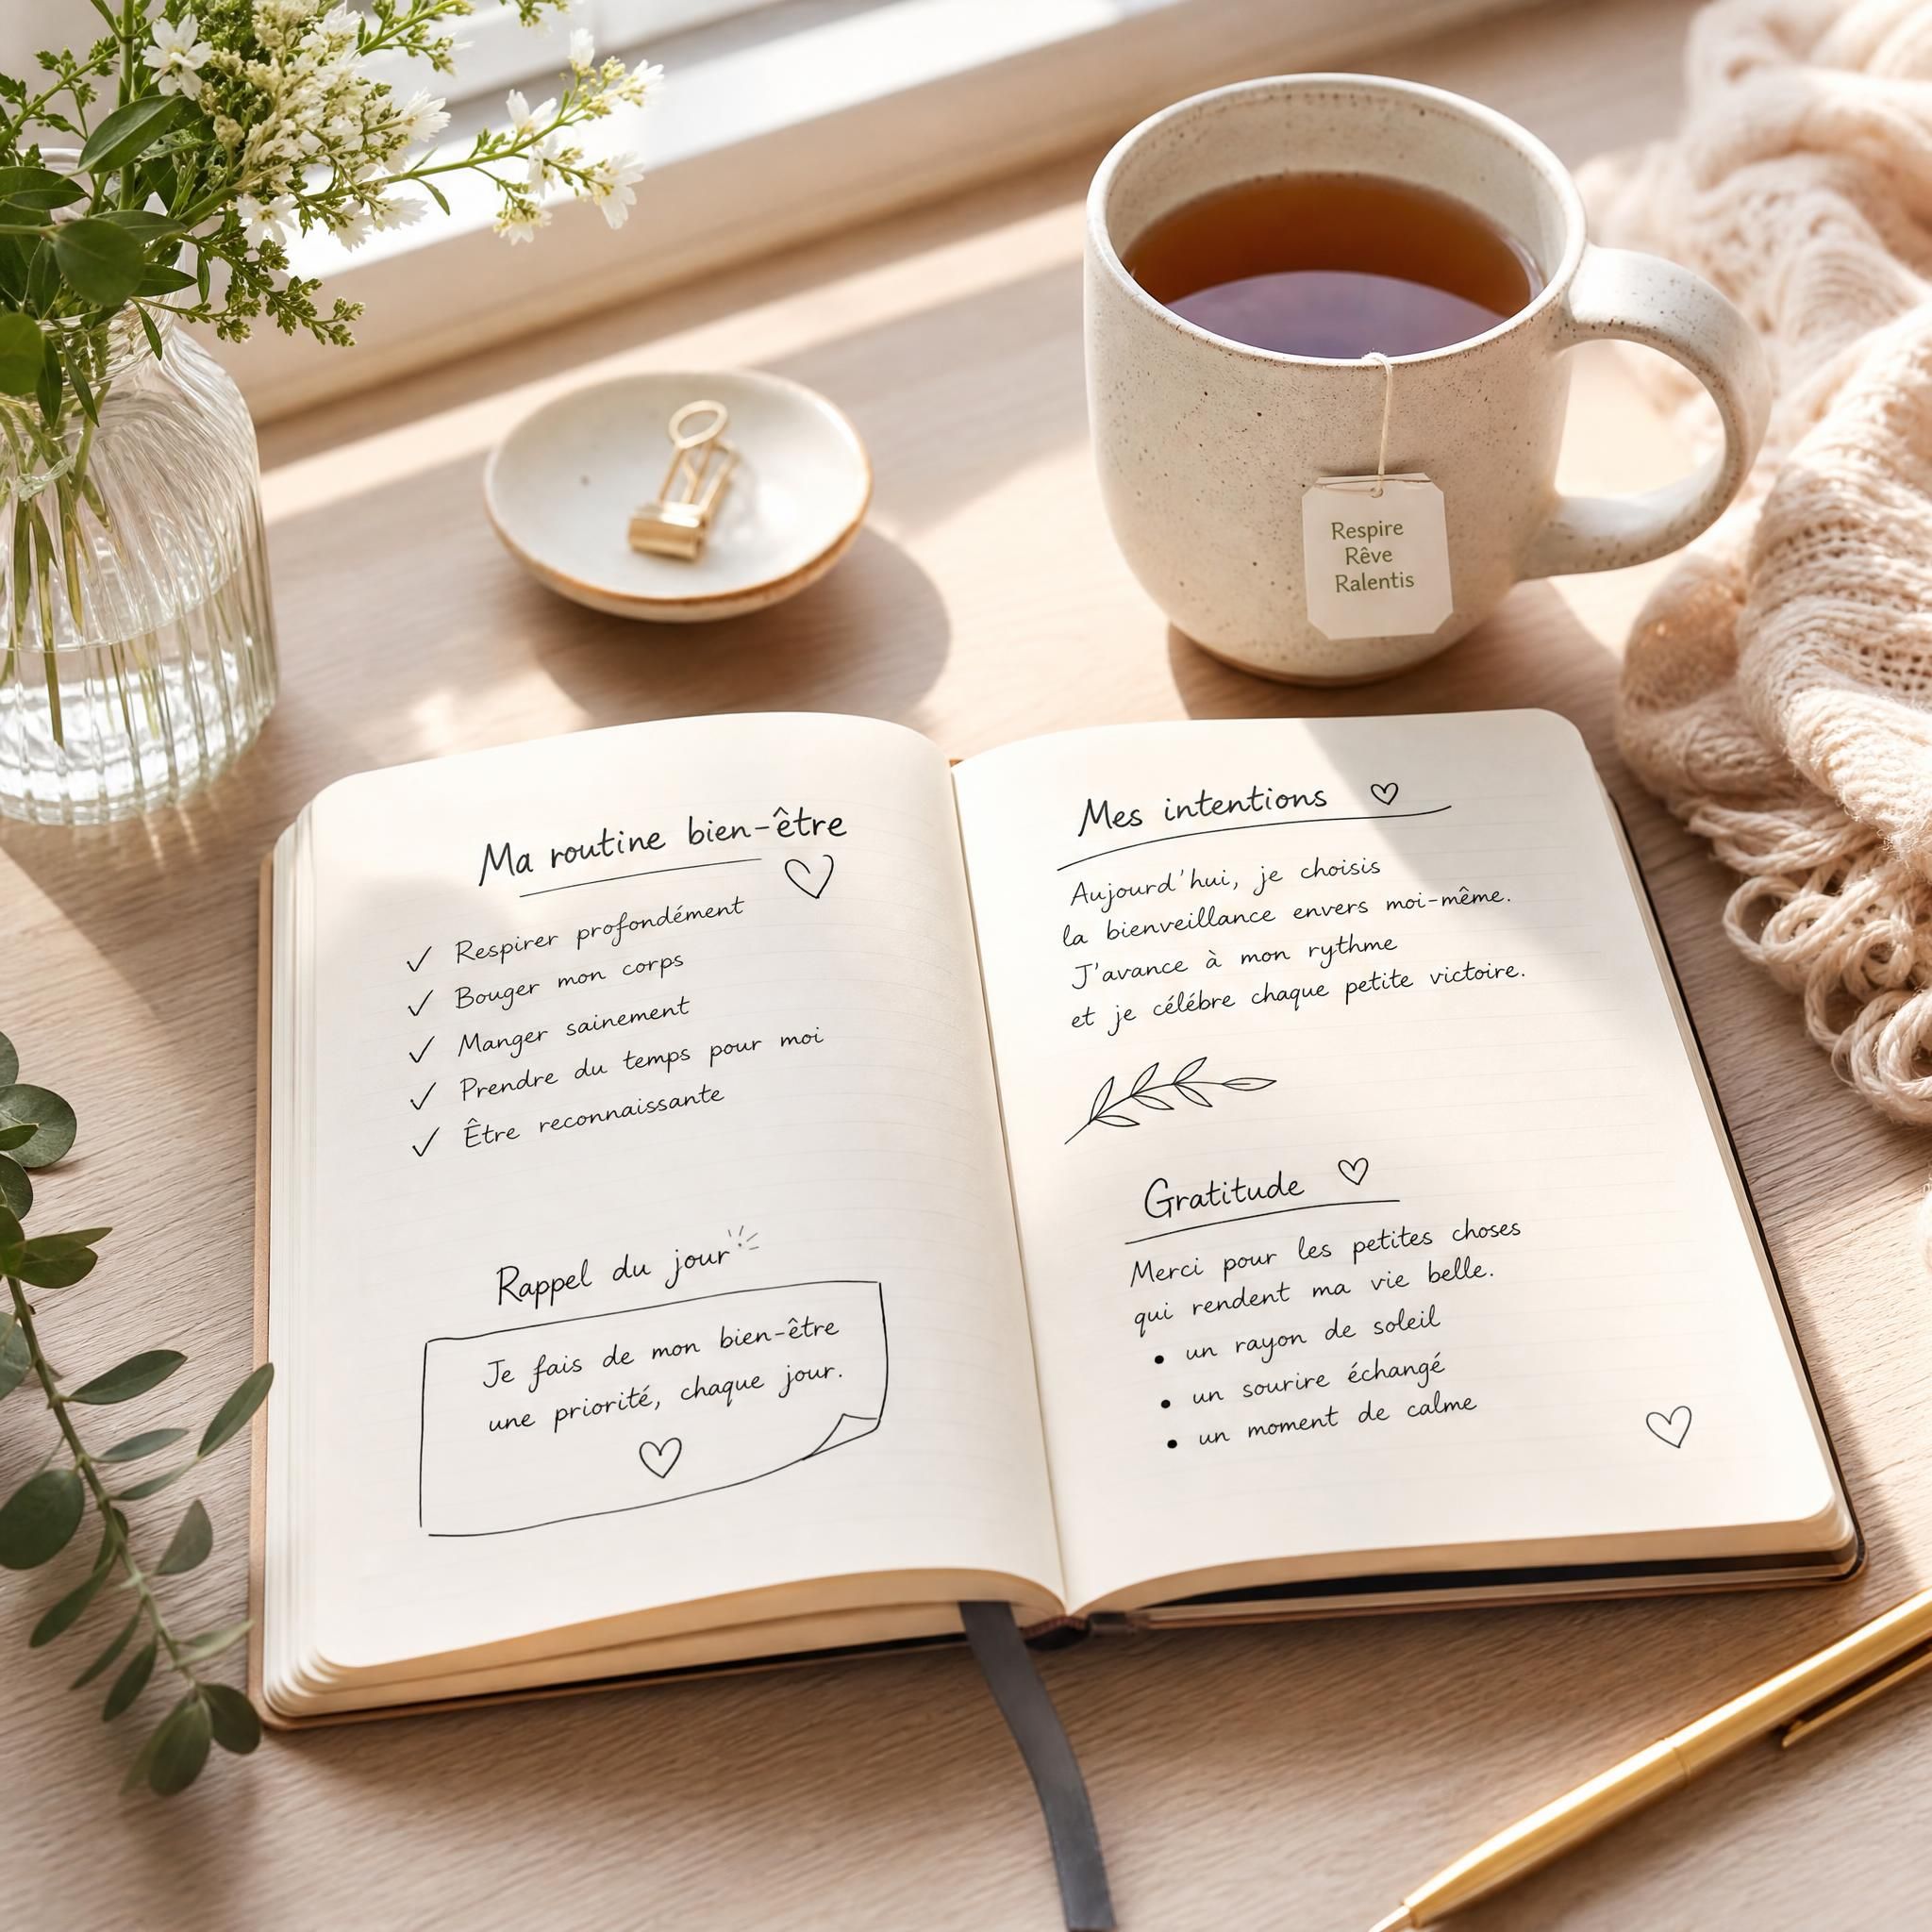 Respire
Rêve
Ralentis
Ma routine bien-être
✓ Respirer profondément
✓ Bouger mon corps
✓ Manger sainement
✓ Prendre du temps pour moi
✓ Être reconnaissante
Rappel du jour
Je fais de mon bien-être
une priorité, chaque jour.
Mes intentions
Aujourd'hui, je choisis
la bienveillance envers moi-même.
J'avance à mon rythme
et je célébre chaque petite victoire.
Gratitude
Merci pour les petites choses
qui rendent ma vie belle.
• un rayon de soleil
• un sourire échangé
• un moment de calme